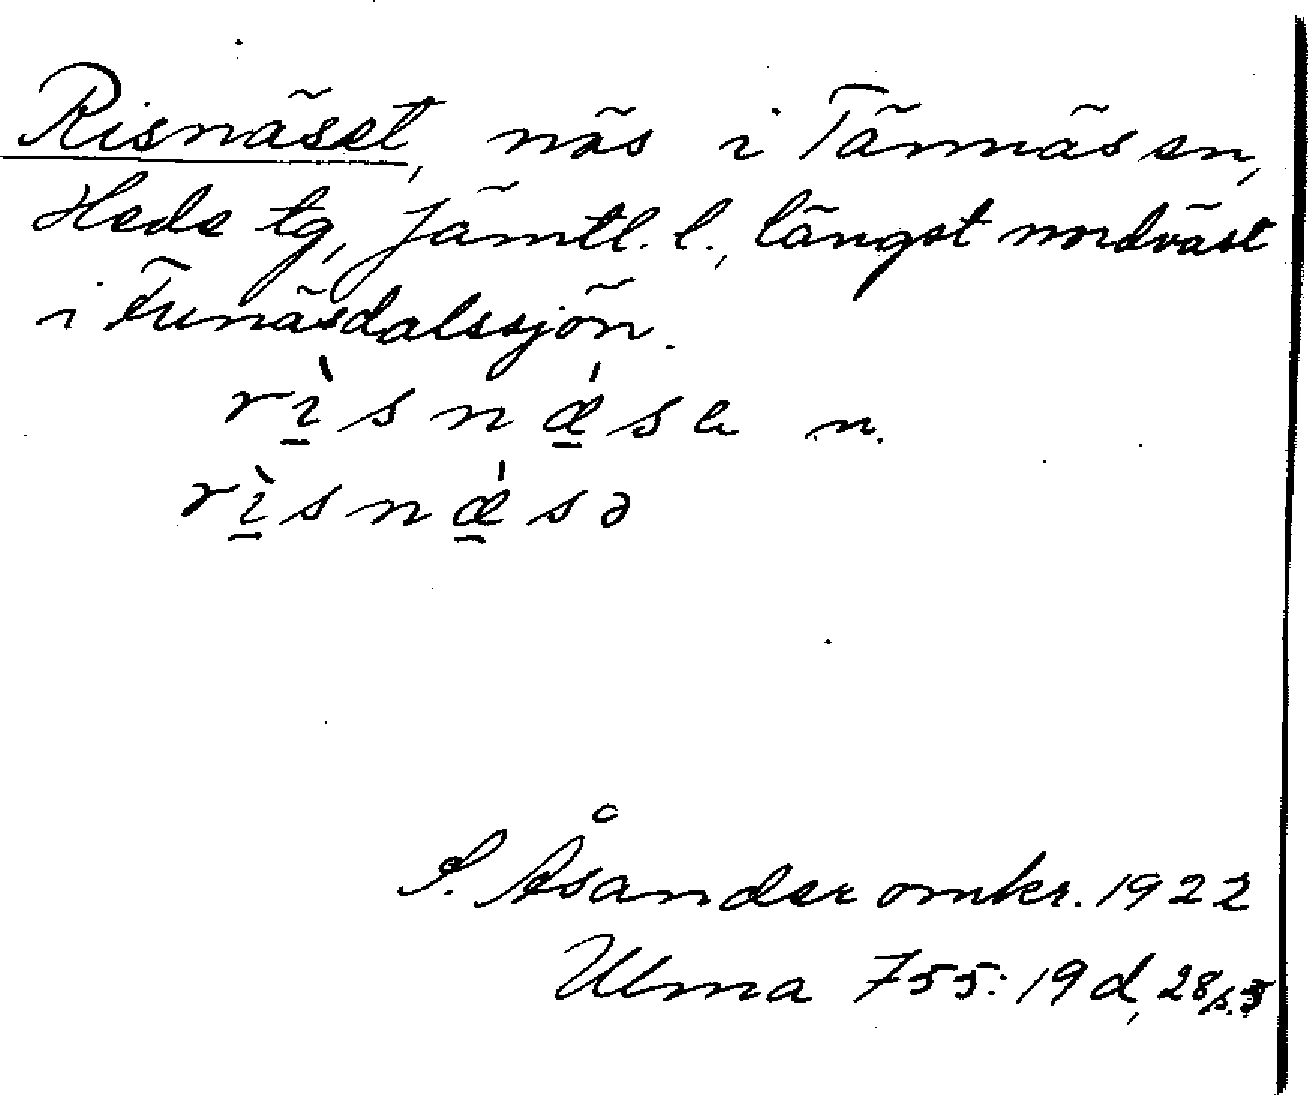 Risnäset, näs i Tännäs sn,
Hede tg, Jämtl. l., längst nordväst
i Funäsdalssjön.
rì̱snǽ̱sa n.
rì̱snǽ̱sə
S. Åsander omkr. 1922
Ulma 755: 19 d, 28/s.